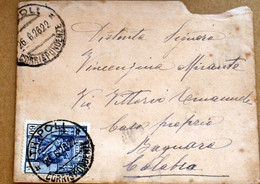 NAPOLI
26.6.26 22
CORRISPONDENZE
Distinta Signora
Vincenzina Morante
Via Vittorio Emanuele
Casa propria
Bagnara
Calabra
NAPOLI
CORRISPONDENZE